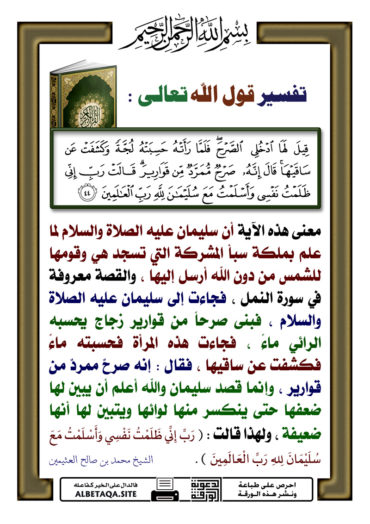 بسم الله الرحمن الرحيم
تفسير قول الله تعالى :
قِيلَ لَهَا ٱدْخُلِي ٱلصَّرْحَ فَلَمَّا رَأَتْهُ حَسِبَتْهُ لُجَّةً وَكَشَفَتْ عَن
سَاقَيْهَا قَالَ إِنَّهُۥ صَرْحٌ مُّمَرَّدٌ مِّن قَوَارِيرَ قَالَتْ رَبِّ إِنِّي
ظَلَمْتُ نَفْسِي وَأَسْلَمْتُ مَعَ سُلَيْمَٰنَ لِلَّهِ رَبِّ ٱلْعَٰلَمِينَ ﴿٤٤﴾
معنى هذه الآية أن سليمان عليه الصلاة والسلام لما
علم بملكة سبأ المشركة التي تسجد هي وقومها
للشمس من دون الله أرسل إليها ، والقصة معروفة
في سورة النمل ، فجاءت إلى سليمان عليه الصلاة
والسلام ، فبنى صرحاً من قوارير زجاج يحسبه
الرائي ماءً ، فجاءت هذه المرأة فحسبته ماءً
فكشفت عن ساقيها ، فقال : إنه صرح ممردٌ من
قوارير ، وإنما قصد سليمان والله أعلم أن يبين لها
ضعفها حتى ينكسر منها لوائها ويتبين لها أنها
ضعيفة ، ولهذا قالت : ( رَبِّ إِنِّي ظَلَمْتُ نَفْسِي وَأَسْلَمْتُ مَعَ
سُلَيْمَانَ لِلهِ رَبِّ الْعَالَمِينَ ) . الشيخ محمد بن صالح العثيمين
احرص على طباعة
ونشر هذه الورقة
الدعوية
الورقة
فالدال على الخير كفاعله
ALBETAQA.SITE